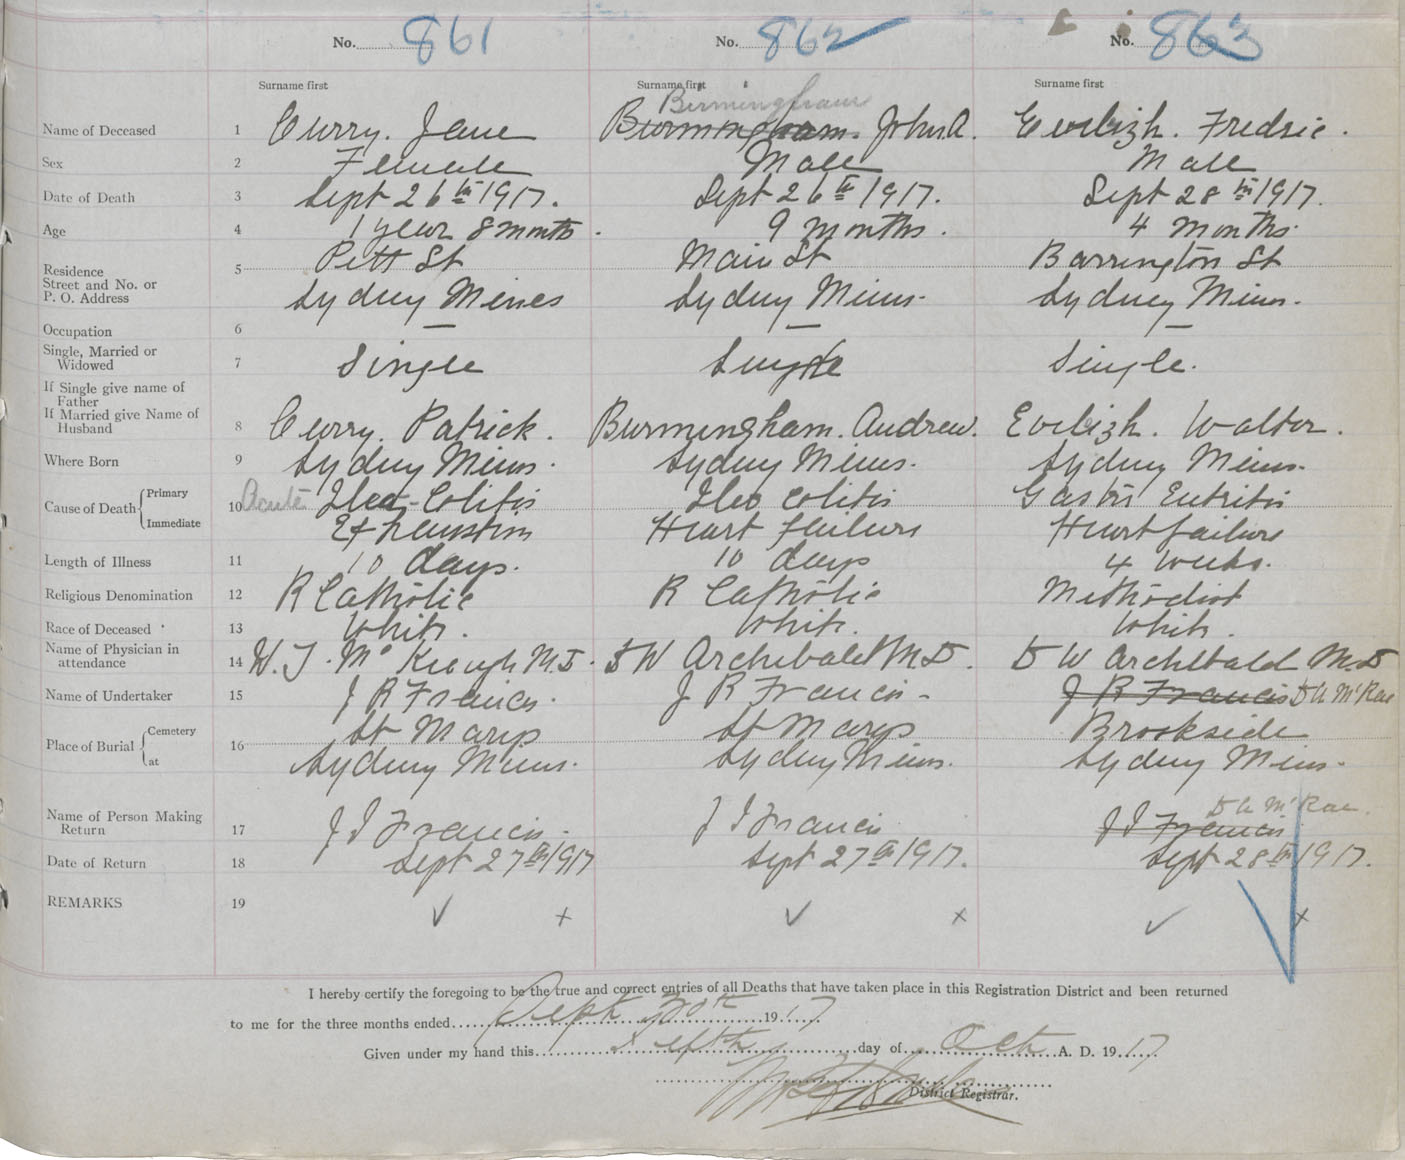 No. 861 No. 862 No. 863
Surname first Surname first Surname first
Birmingham
Name of Deceased 1 Curry. Jane Burmingham. John A. Eveligh. Fredric.
Sex 2 Female Male Male
Date of Death 3 Sept 26th 1917. Sept 26th 1917. Sept 28th 1917.
Age 4 1 year 8 months. 9 months. 4 months.
Residence Street and No. or P. O. Address 5 Pitt St Main St Barrington St
Sydney Mines Sydney Mines. Sydney Mines.
Occupation 6 — — —
Single, Married or Widowed 7 Single Single Single.
If Single give name of Father
If Married give Name of Husband 8 Curry. Patrick. Burmingham. Andrew. Eveligh. Walter.
Where Born 9 Sydney Mines. Sydney Mines. Sydney Mines.
Cause of Death Primary 10 Acute Ileo-Colitis Ileo Colitis Gastro Entritis
Immediate Exhaustion Heart failure Heart failure
Length of Illness 11 10 days. 10 days 4 weeks.
Religious Denomination 12 R Catholic R Catholic Methodist
Race of Deceased 13 White. White. White.
Name of Physician in attendance 14 W. J. Mc Keough M.D. D W Archibald M.D. D W Archibald M.D
Name of Undertaker 15 J R Francis. J R Francis. J R Francis D A McRae
Place of Burial Cemetery 16 St Marys St Marys Brookside
at Sydney Mines. Sydney Mines. Sydney Mines.
D A McRae.
Name of Person Making Return 17 J J Francis. J J Francis J J Francis
Date of Return 18 Sept 27th 1917 Sept 27th 1917. Sept 28th 1917.
REMARKS 19 ✓ x ✓ x ✓ x
I hereby certify the foregoing to be the true and correct entries of all Deaths that have taken place in this Registration District and been returned
to me for the three months ended Sept 30th 1917
Given under my hand this fifth day of Oct A. D. 1917
District Registrar.